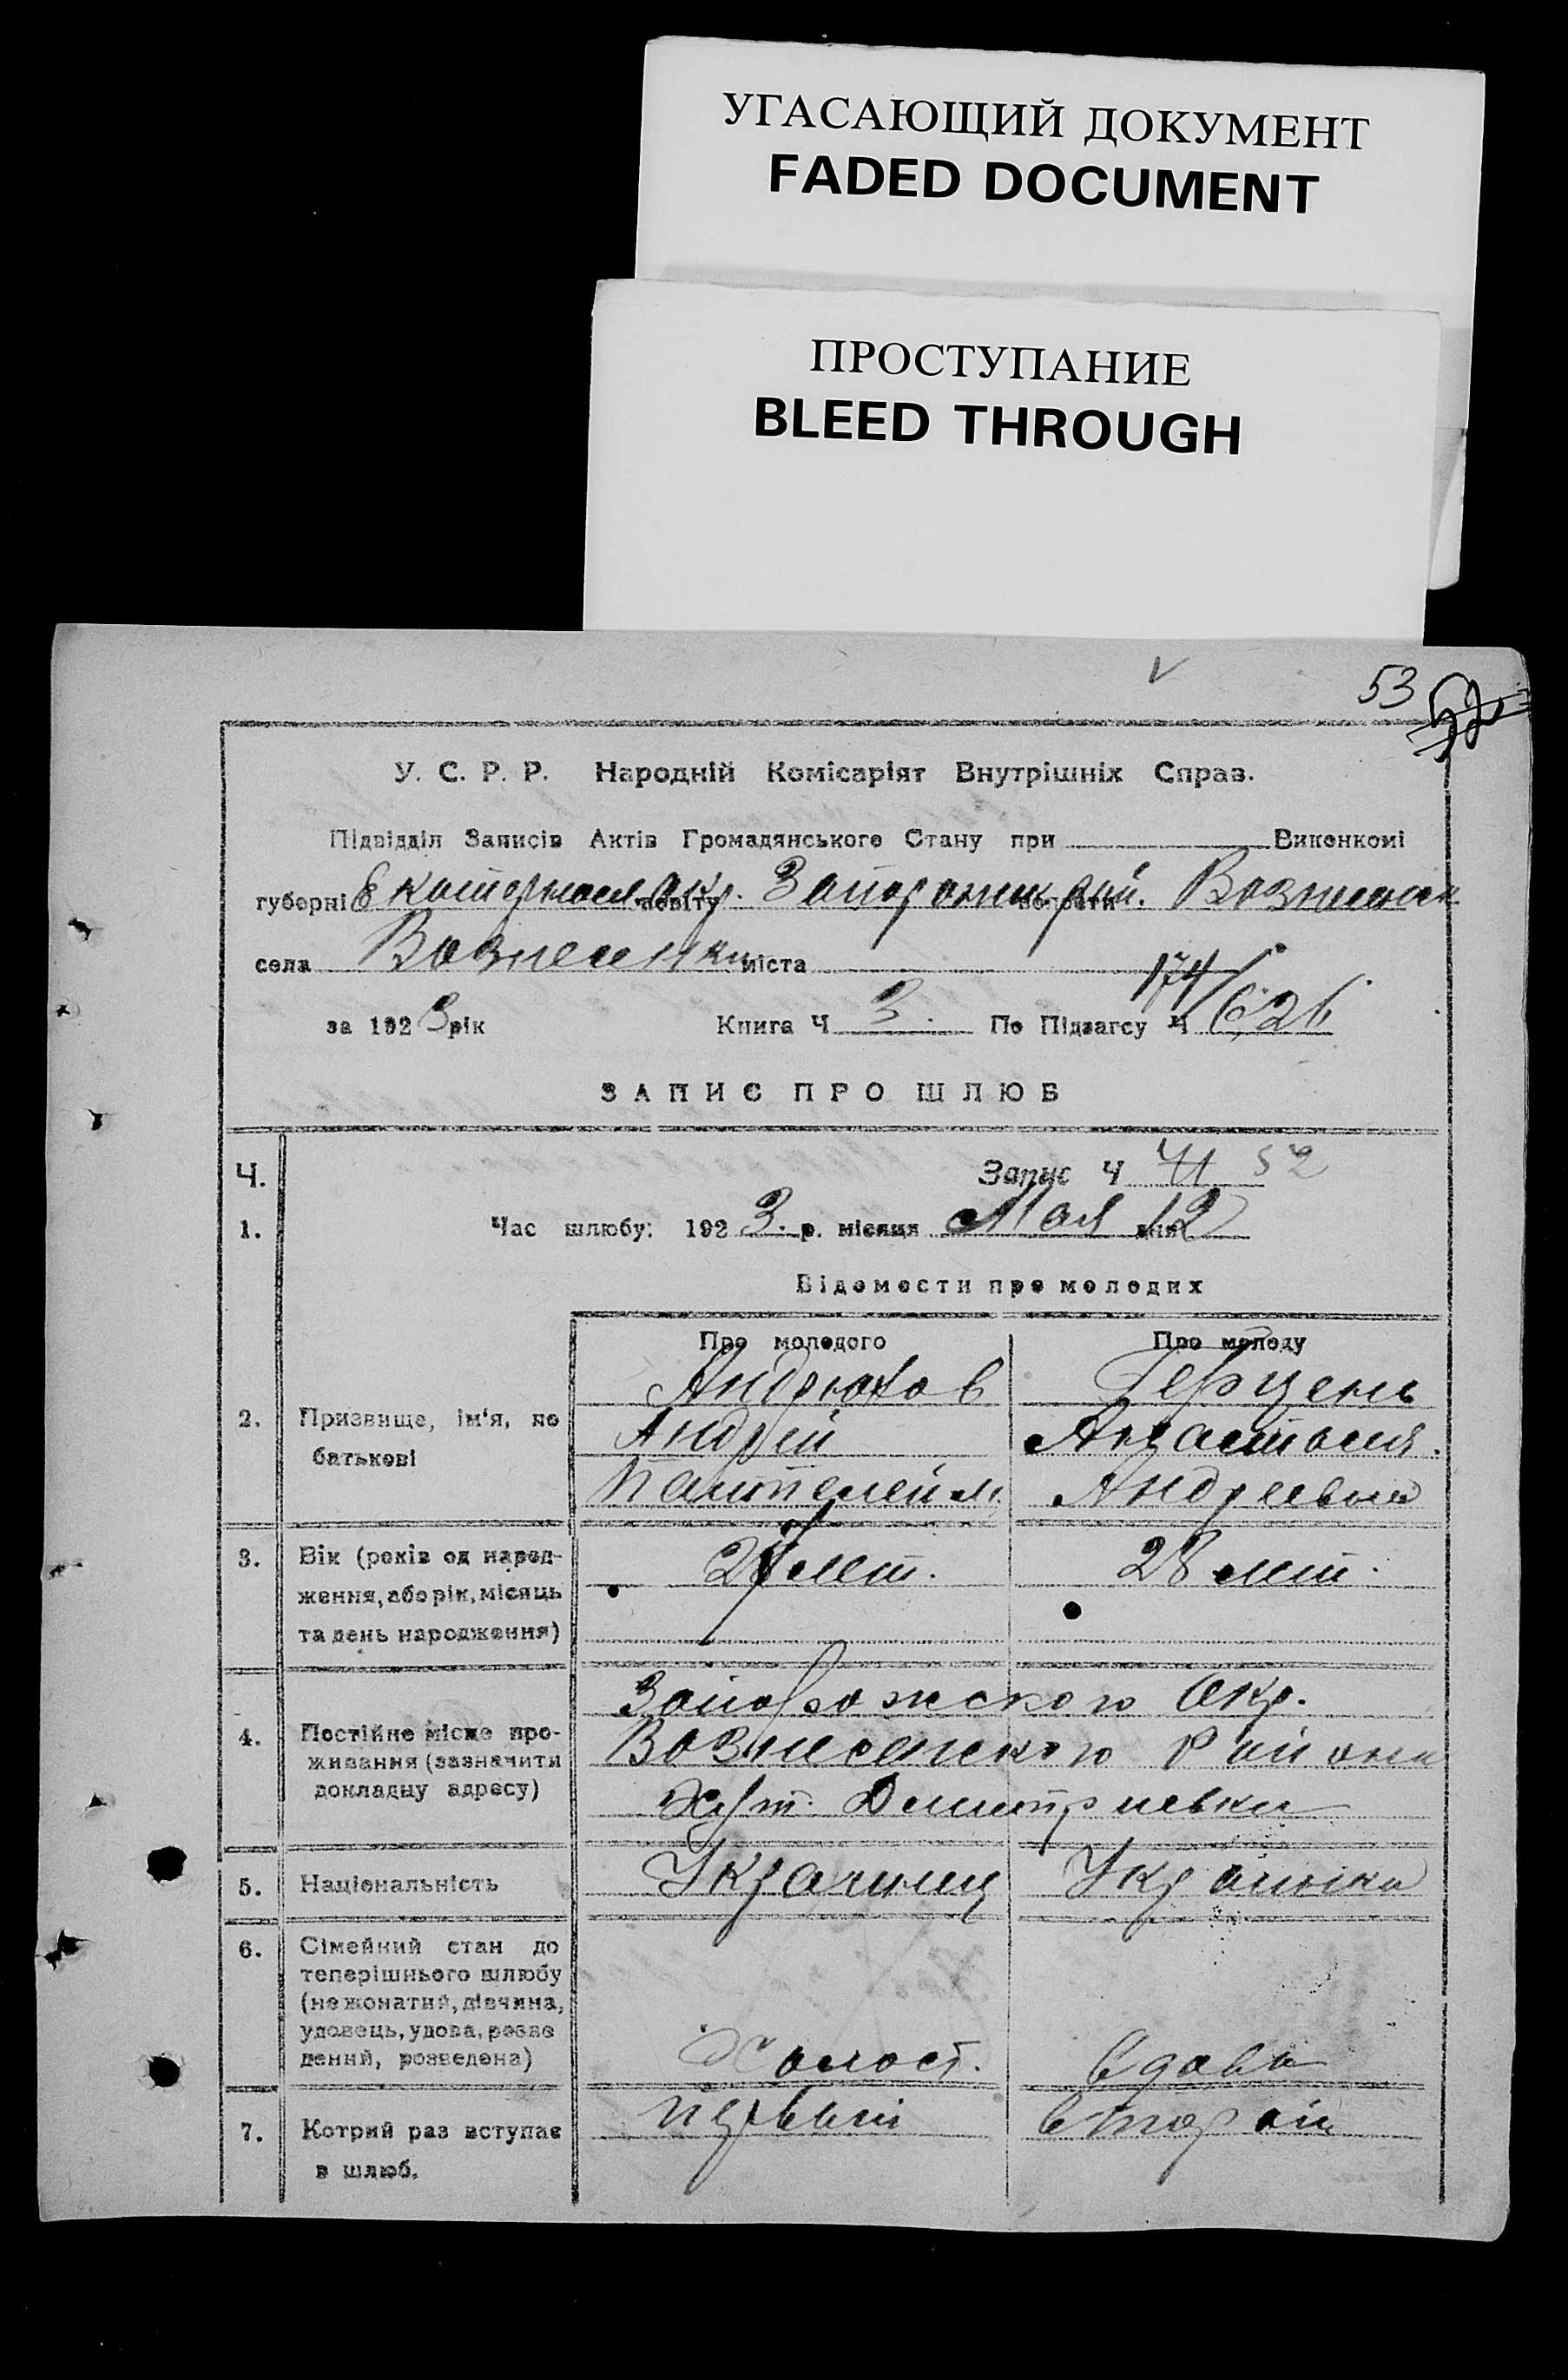 УГАСАЮЩИЙ ДОКУМЕНТ
FADED DOCUMENT
ПРОСТУПАНИЕ
BLEED THROUGH
53
У. С. Р. Р. Народній Комісаріят Внутрішніх Справ.
Підвідділ Записів Актів Громадянського Стану при Виконкомі
губерні повіту Запорожск волости
села Вознесенки міста
174/626
за 1923 рік Книга Ч 3. По Підзагсу Ч
ЗАПИС ПРО ШЛЮБ
Ч. Запис Ч 41 52
1. Час шлюбу: 1923. р. місяця Мая дня 12
Відомости про молодих
Про молодого Про молоду
Андрюхов Герцень
2. Призвище, ім'я, по батькові
Андрей Анастасия.
Пантелейм. Андреевна
3. Вік (років од народ-
ження, або рік, місяць
та день народження)
лет. 28 лет.
Запорожского Окр.
4. Постійне місце про-
живання (зазначити
докладну адресу)
Вознесенского Района
Хут. Дмитриевки
5. Національність Украинец Украинка
6. Сімейний стан до
теперішнього шлюбу
(не жонатий, дівчина,
удовець, удова, розве
дений, розведена)
Холост. вдова
7. Котрий раз вступає
в шлюб.
первый второй